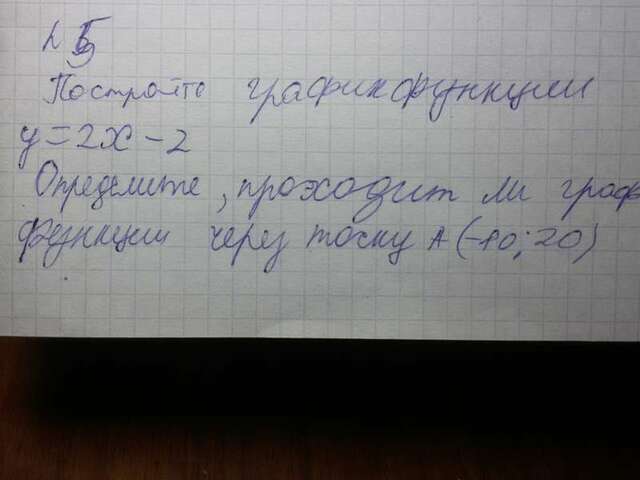 Постройте график функции
y = 2x - 2
Определите, проходит ли граф
функции через точку А (-10; 20)